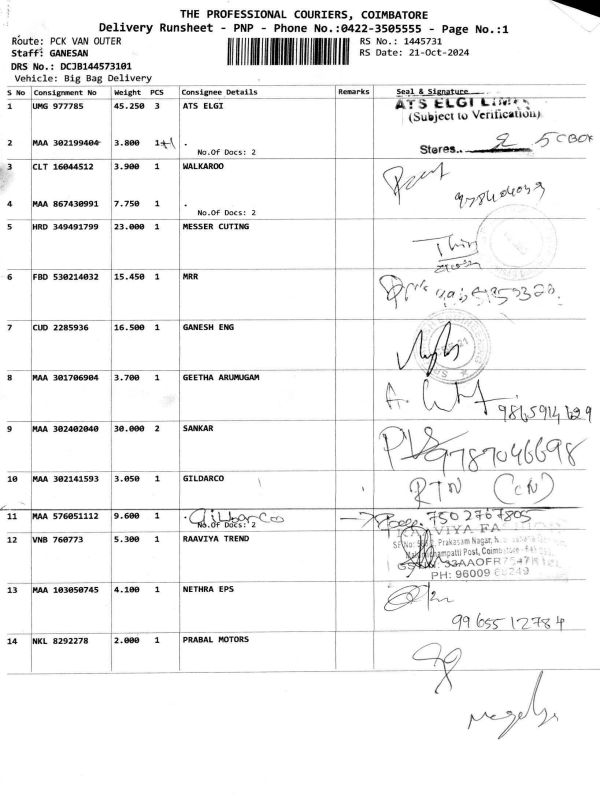 THE PROFESSIONAL COURIERS, COIMBATORE
Delivery Runsheet - PNP - Phone No.:0422-3505555 - Page No.:1
Route: PCK VAN OUTER
RS No.: 1445731
Staff: GANESAN
RS Date: 21-Oct-2024
DRS No.: DCJB144573101
Vehicle: Big Bag Delivery
S No Consignment No Weight PCS Consignee Details Remarks Seal & Signature
1 UMG 977785 45.250 3 ATS ELGI
ATS ELGI
(Subject to Verification)
2 MAA 302199404 3.800 1 .
No.Of Docs: 2
Stores..
3 CLT 16044512 3.900 1 WALKAROO
4 MAA 867430991 7.750 1 .
No.Of Docs: 2
5 HRD 349491799 23.000 1 MESSER CUTING
6 FBD 530214032 15.450 1 MRR
7 CUD 2285936 16.500 1 GANESH ENG
8 MAA 301706904 3.700 1 GEETHA ARUMUGAM
9865914629
9 MAA 302402040 30.000 2 SANKAR
9787046698
10 MAA 302141593 3.050 1 GILDARCO
RTN (CN)
11 MAA 576051112 9.600 1 . Gilbarco
No.Of Docs: 2
7502767805
12 VNB 760773 5.300 1 RAAVIYA TREND
Prakasam Nagar,
Post, Coimbatore
PH: 96009
13 MAA 103050745 4.100 1 NETHRA EPS
9965512784
14 NKL 8292278 2.000 1 PRABAL MOTORS